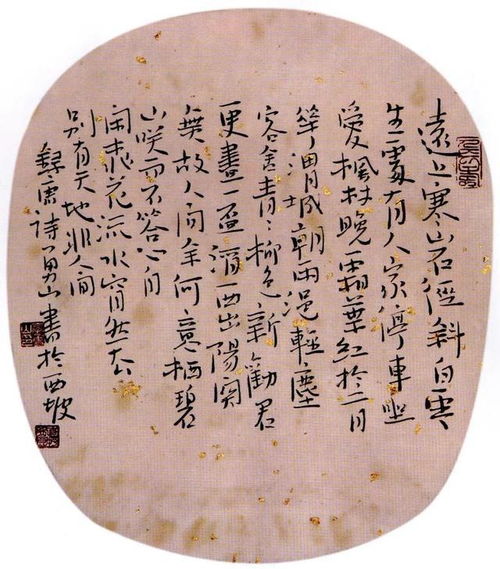 遠上寒山石徑斜白雲
生處有人家停車坐
愛楓林晚霜葉紅於二月
華渭城朝雨浥輕塵
客舍青〻柳色新勸君
更盡一盃酒西出陽關
無故人問余何意栖碧
山笑而不答心自
閑桃花流水窅然去
別有天地非人間
錄唐詩 山書於西坡